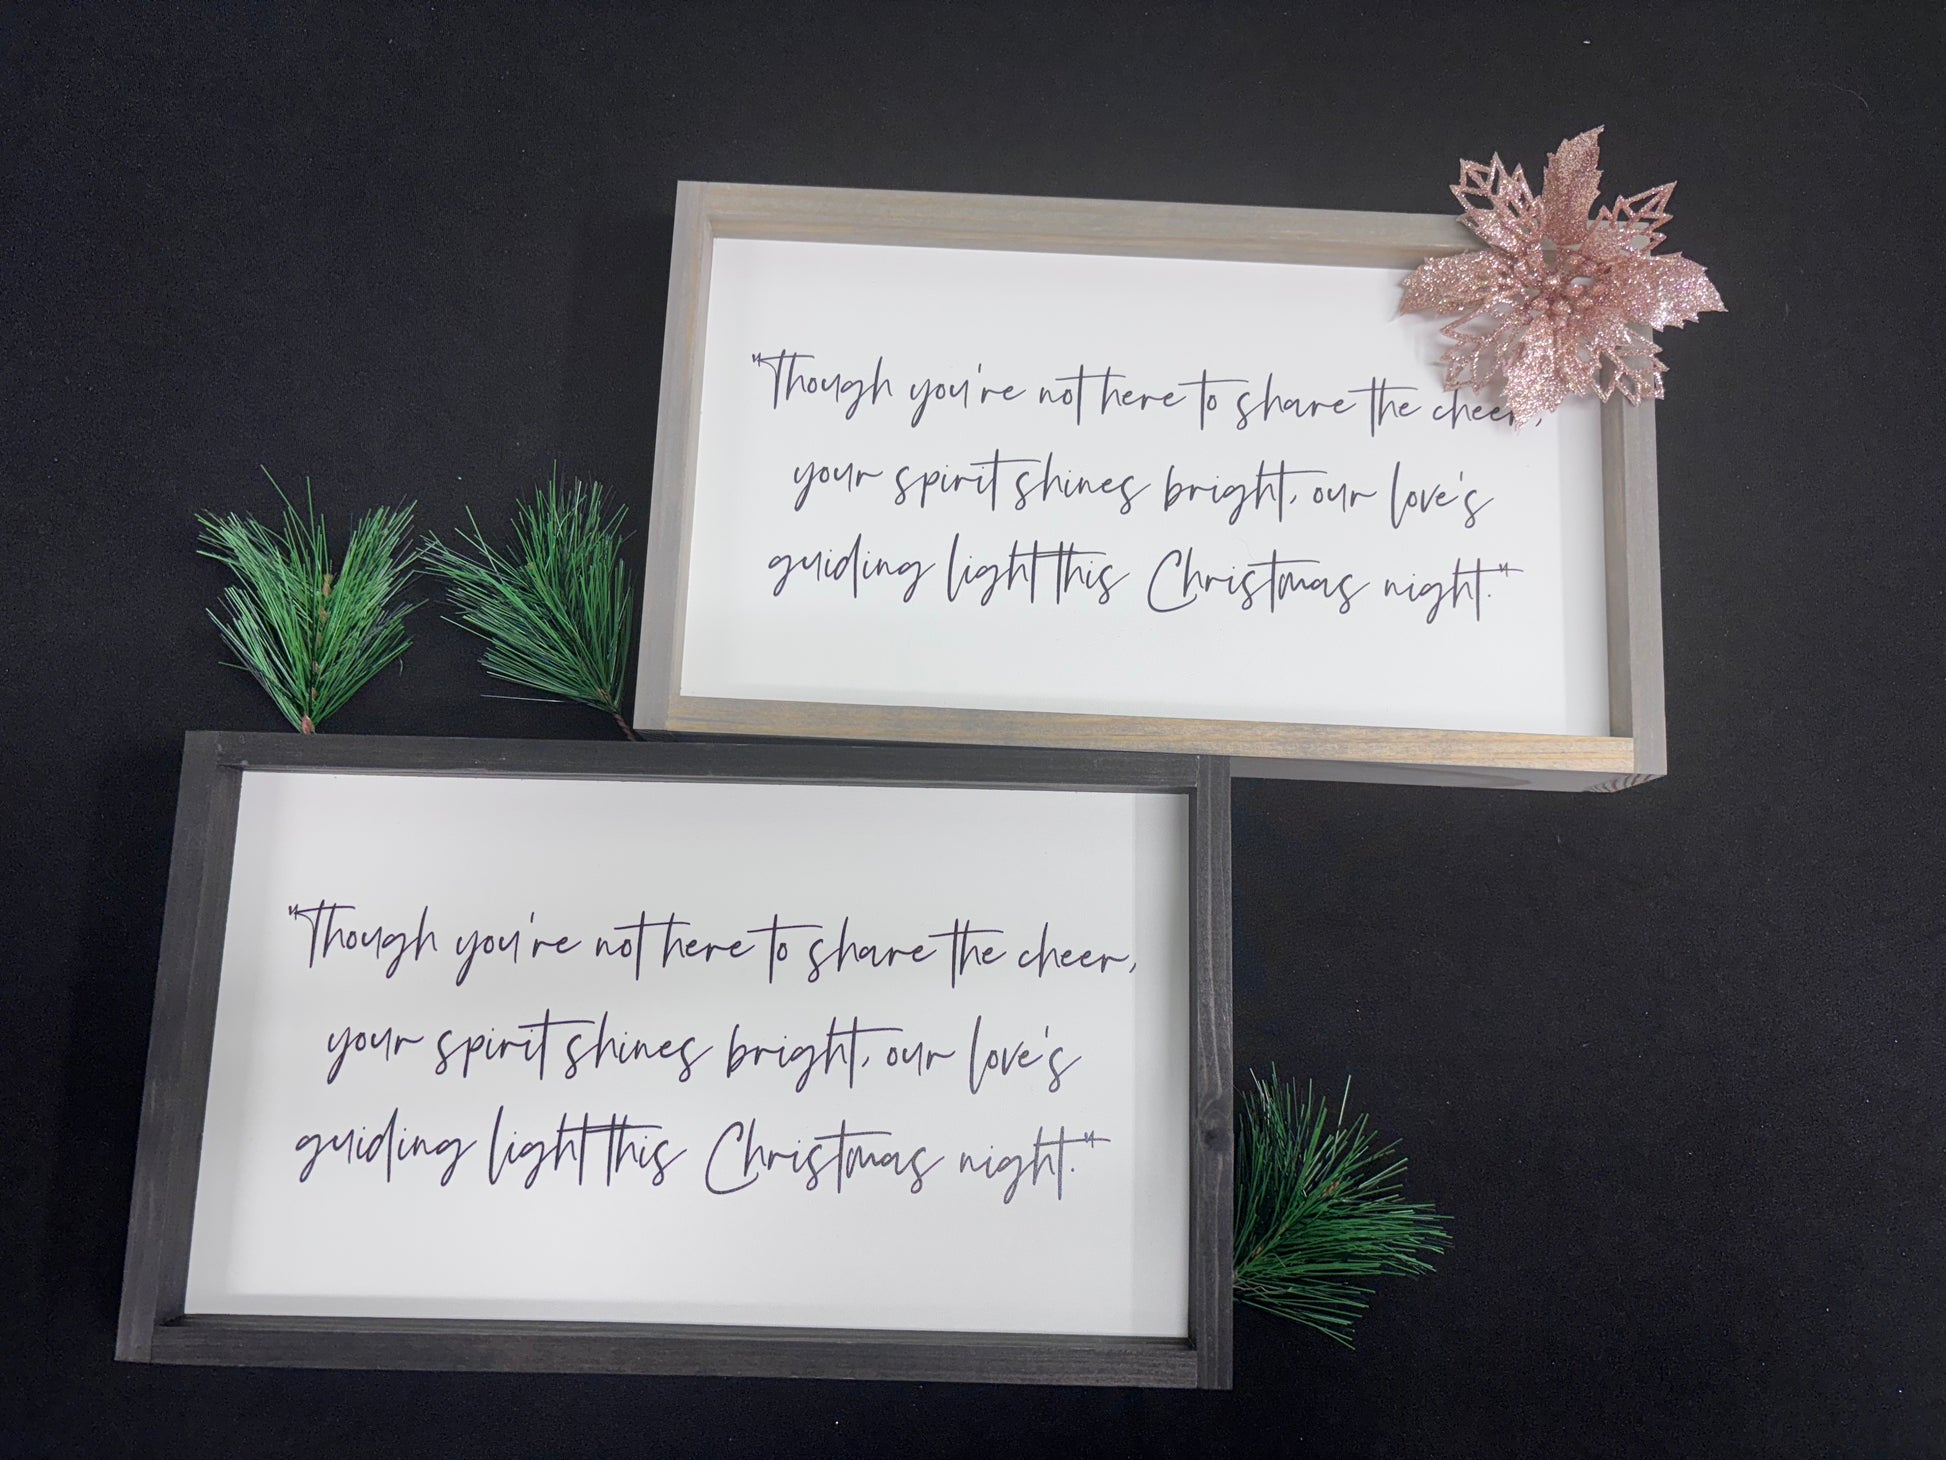 "Though you're not here to share the cheer,
your spirit shines bright, our love's
guiding light this Christmas night."
"Though you're not here to share the cheer,
your spirit shines bright, our love's
guiding light this Christmas night."